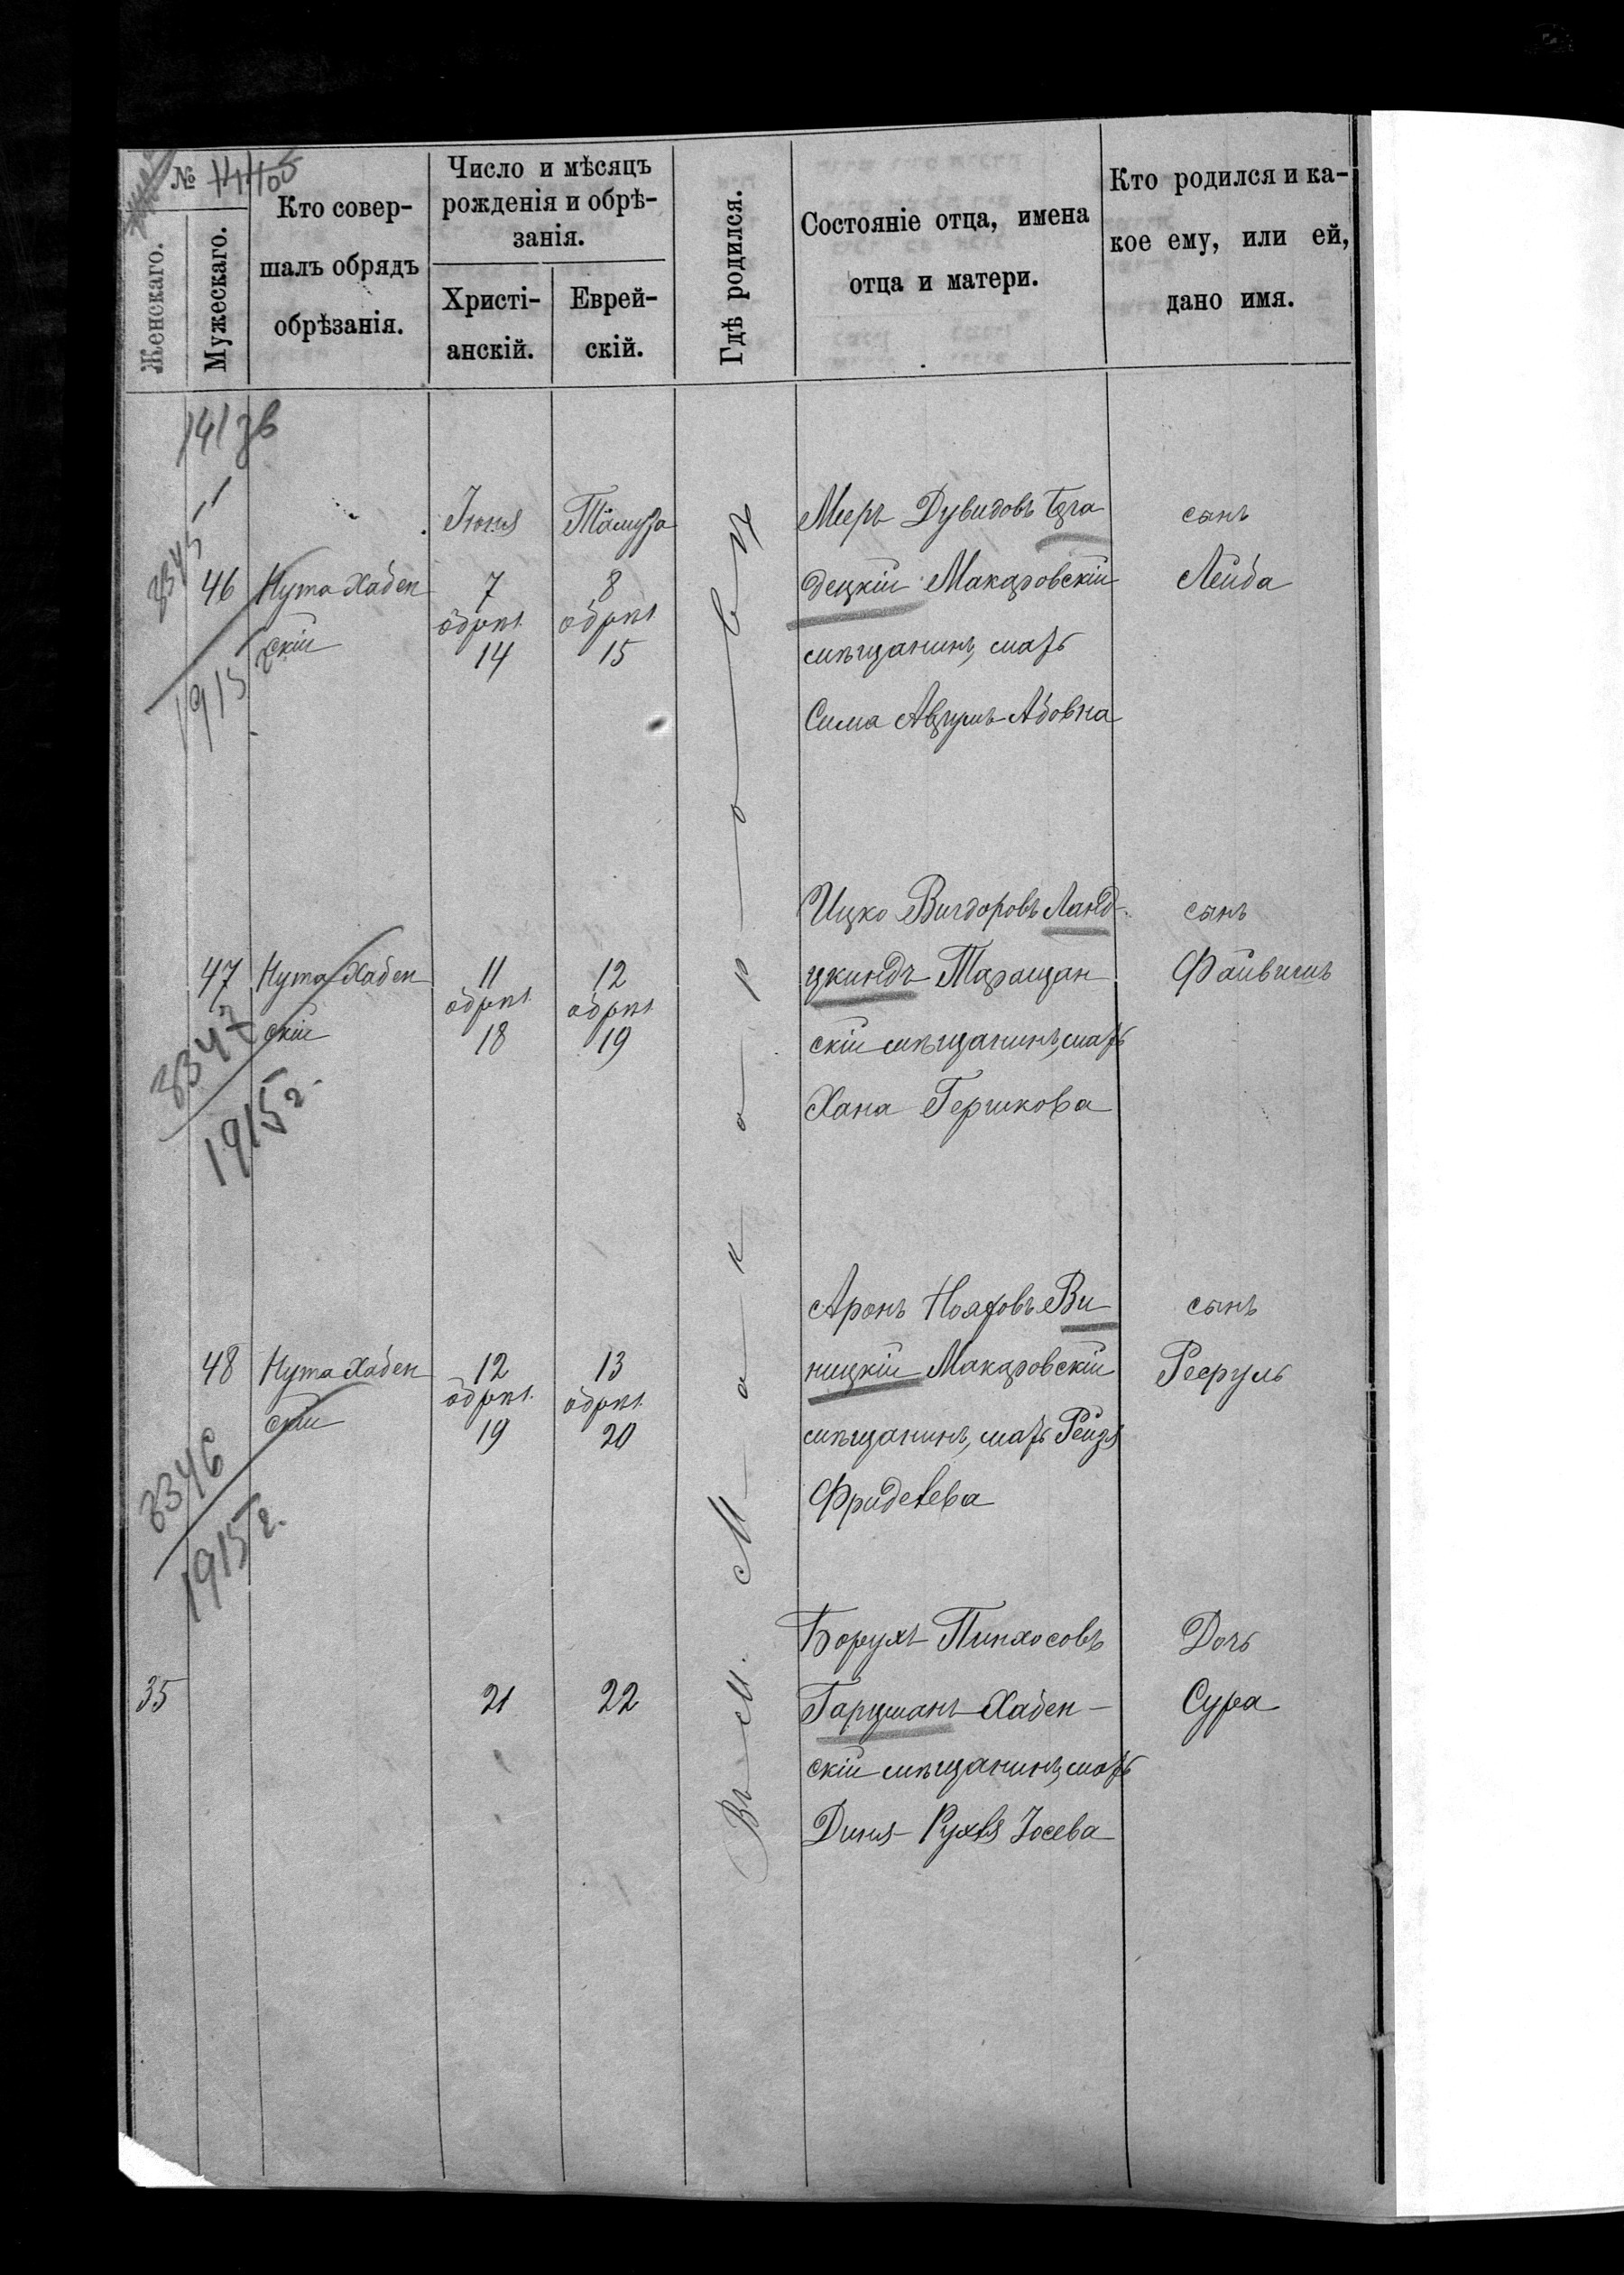 №
Женскаго.
Мужескаго.
Кто совер-
шалъ обрядъ
обрѣзанія.
Число и мѣсяцъ
рожденія и обрѣ-
занія.
Христі-
анскій.
Еврей-
скій.
Гдѣ родился.
Состояніе отца, имена
отца и матери.
Кто родился и ка-
кое ему, или ей,
дано имя.
Въ м. Макаровѣ
3345
1915
46
Нута Хабен
скій
Іюня
7
обрѣз.
14
Тамуза
8
обрѣз.
15
Мееръ Дувидовъ
децкій Макаровскій
мѣщанинъ, мать
Сима Абовна
сынъ
Лейба
47
3347
1915 г.
Нута Хабен
скій
11
обрѣз.
18
12
обрѣз.
19
Ицко Вигдоровъ Ланд-
цкиндъ Таращан
скій мѣщанинъ, мать
Хана Гершкова
сынъ
Файвишъ
48
3346
1915 г.
Нута Хабен
скій
12
обрѣз.
19
13
обрѣз.
20
Аронъ Нояховъ Ви
ницкій Макаровскій
мѣщанинъ, мать Рейзя
Фриделева
сынъ
35
21
22
Борухъ Пинхосовъ
Гарцманъ Хабен-
скій мѣщанинъ, мать
Диня-Рухля Іосева
Дочь
Сура